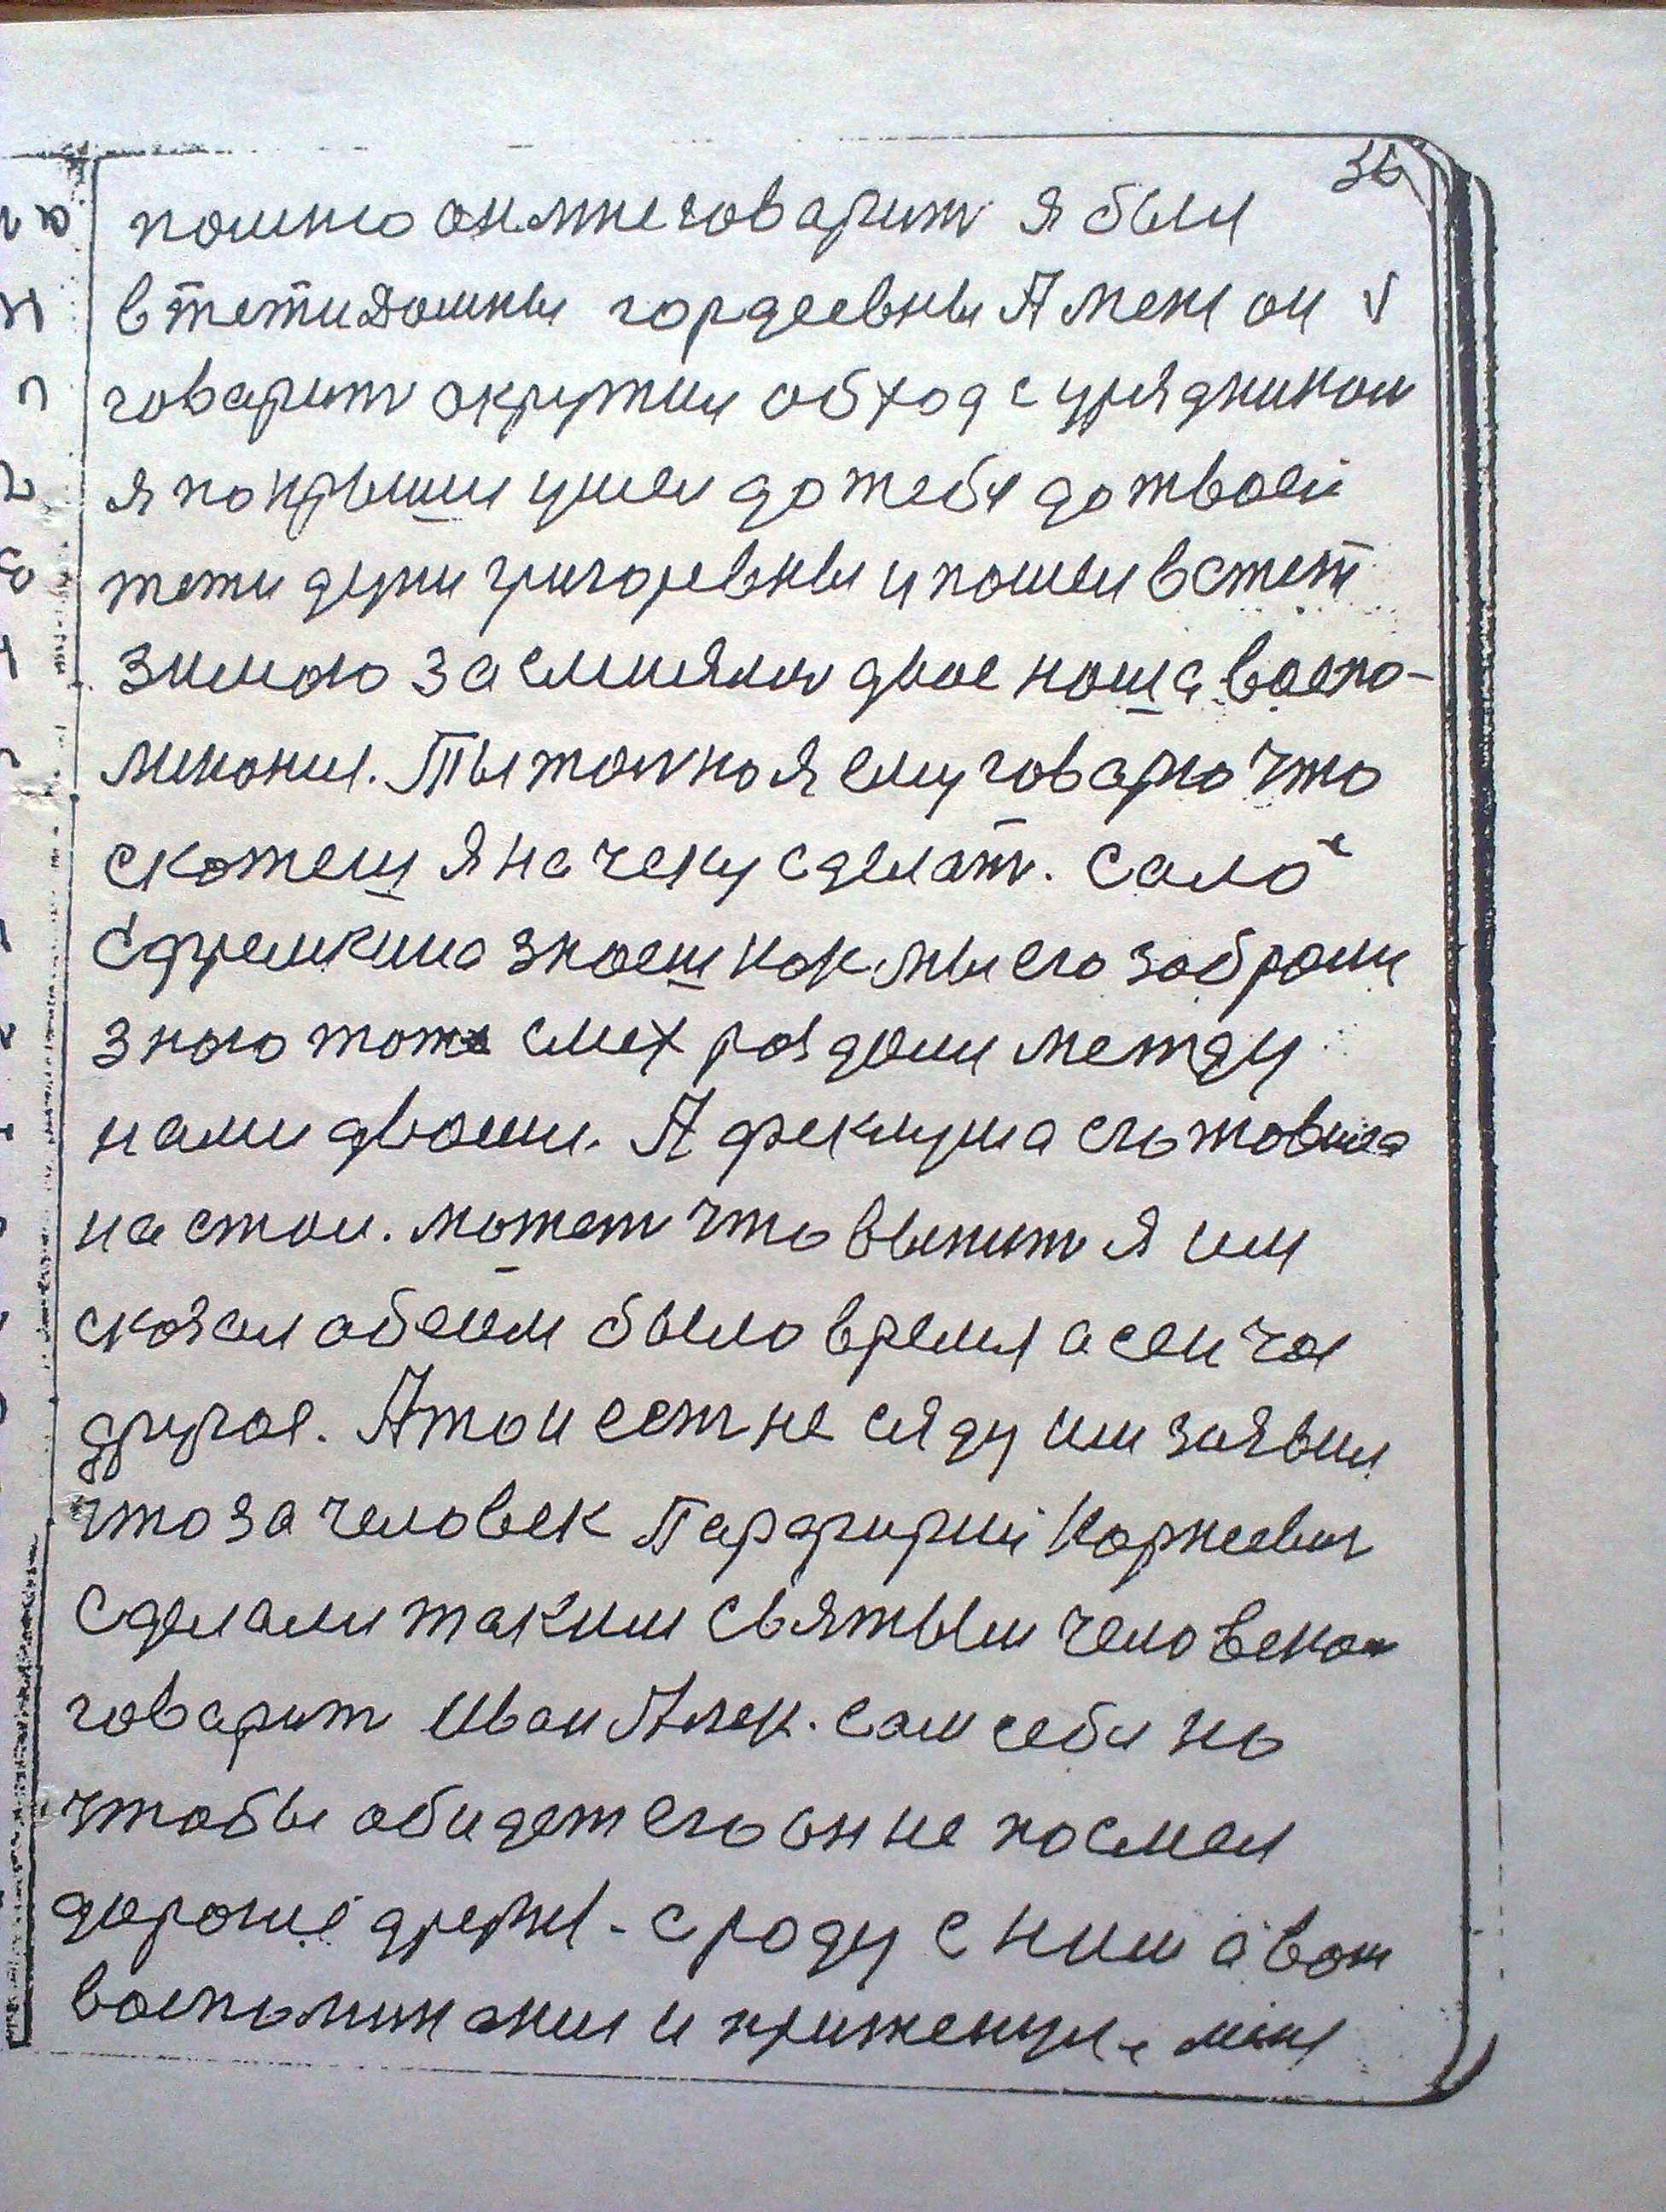 36
помню он мне говарит я был
в тети Домны гордеевны А меня он
говарит окружил обход с урядником
я покрыши ушел до тебя до твоей
тети дуни григоревны и пошел в степ
зимою засмиялис двое наша воспо-
минания. Ты толко я ему говарю что
скажеш я на чеку сделат. Сало
Ефремкино знаеш как мы его забрали
знаю тоже смех раздали между
нами двоими. А феклуша готовила
на стол. может что выпит я им
сказал обеим было время а сейчас
другое. А то и ест не сяду им заявил
что за человек Парфирий Корнеевич
сделали таким святым человеком
говарит Иван Алек. сам себя но
чтобы обидет его он не посмел
дорогие друзья - сроду с ним а вот
воспоминания и меня